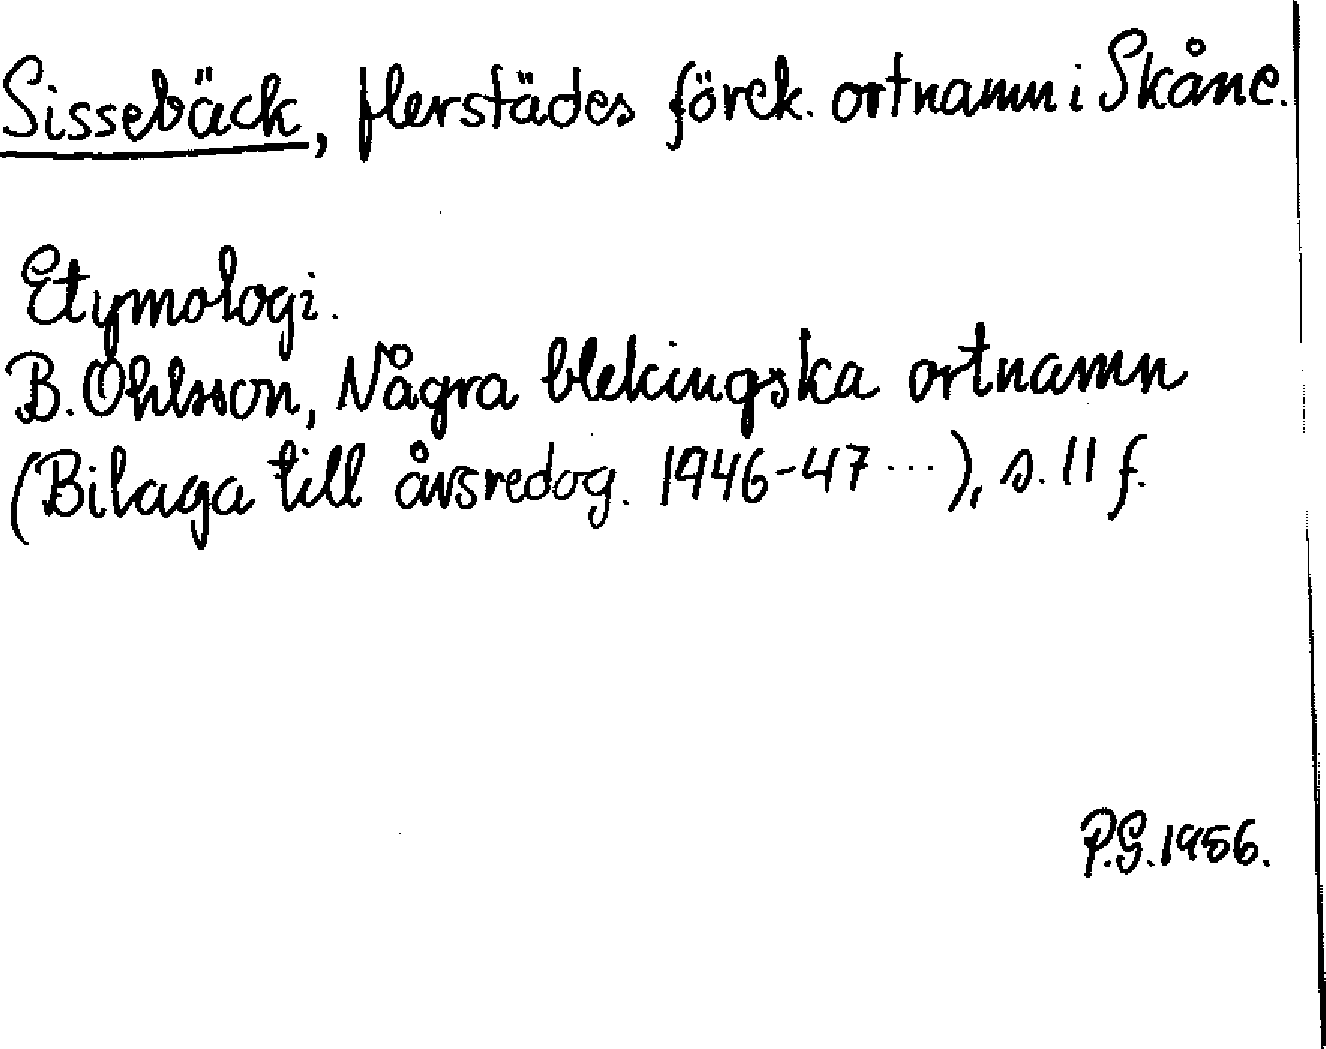 Sissebäck, flerstädes förek. ortnamn i Skåne.
Etymologi.
B. Ohlsson, Några blekingska ortnamn
(Bilaga till årsredog. 1946-47 ...), s. 11 f.
P.G. 1956.